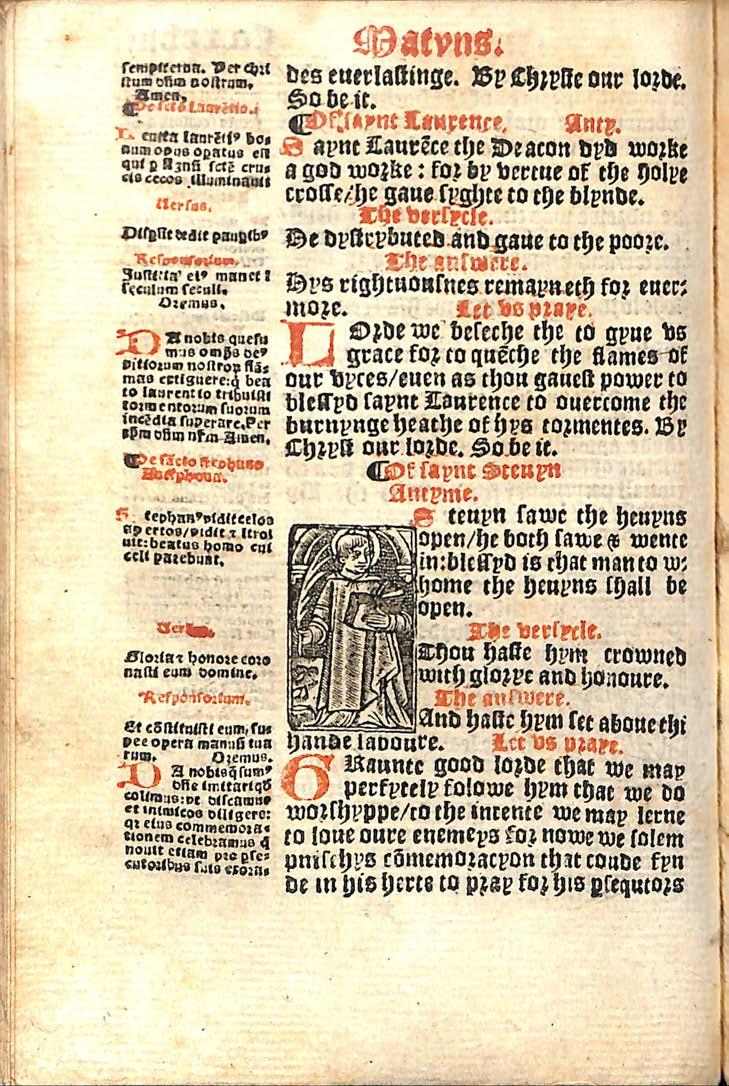 Matyns.
sempiterna. Per Chri
stum dñm nostrum.
Amen.
¶De scto Laurẽtio.
Leuita laurẽtiꝰ bo⸗
num opus opatus est
qui ꝑ signũ sctẽ cru⸗
cis cecos illuminauit
Uersus.
Dispsit dedit paupibꝰ
Responsorium.
Justitia eiꝰ manet ĩ
seculum seculi.
Oremus.
DA nobis quesu
mus omps deꝰ
vitiorum nostroꝝ flã⸗
mas extiguere: q̃ bea
to laurentio tribuisti
tormentorum suorum
incẽdia superare. Per
xp̃m dñm nr̃m Amen.
¶De sãcto stephano
Antiphona.
Stephanꝰ vidit celos
apertos / vidit ⁊ itroi
uit: beatus homo cui
celi patebant.
Versus.
Gloria ⁊ honore coro
nasti eum domine.
Responsorium.
Et cõstituisti eum, su⸗
per opera manuũ tua
rum. Oremus.
DA nobis q̃sumꝰ
dñe imitari qđ
colimus: vt discamus
et inimicos diligere:
qr eius commemora⸗
tionem celebramus q̃
nouit etiam pro pse⸗
cutoribus suis exorar
des euerlastinge. By Chryste our lorde.
So be it.
¶Of saynt Laurence. Anty.
Saynt Laurẽce the Deacon dyd worke
a god worke: for by vertue of the holye
crosse / he gaue syghte to the blynde.
The versycle.
He dystrybuted and gaue to the poore.
The answere.
Hys rightuousnes remayneth for euer⸗
more. Let vs praye.
LOrde we beseche the to gyue vs
grace for to quẽche the flames of
our vyces / euen as thou gauest power to
blessyd saynt Laurence to ouercome the
burnynge heathe of hys tormentes. By
Chryst our lorde. So be it.
¶Of saynt Steuyn
Antyme.
Steuyn sawe the heuyns
open / he both sawe & wente
in: blessyd is that man to w⸗
home the heuyns shall be
open.
The versycle.
Thou haste hym crowned
with glorye and honoure.
The answere.
And haste hym set aboue thi
hande laboure. Let vs praye.
GRaunte good lorde that we may
perfytely folowe hym that we do
worshyppe / to the intente we may lerne
to loue oure enemeys for nowe we solem
pnischys cõmemoracyon that coude fyn
de in his herte to pray for his ꝑsequtors